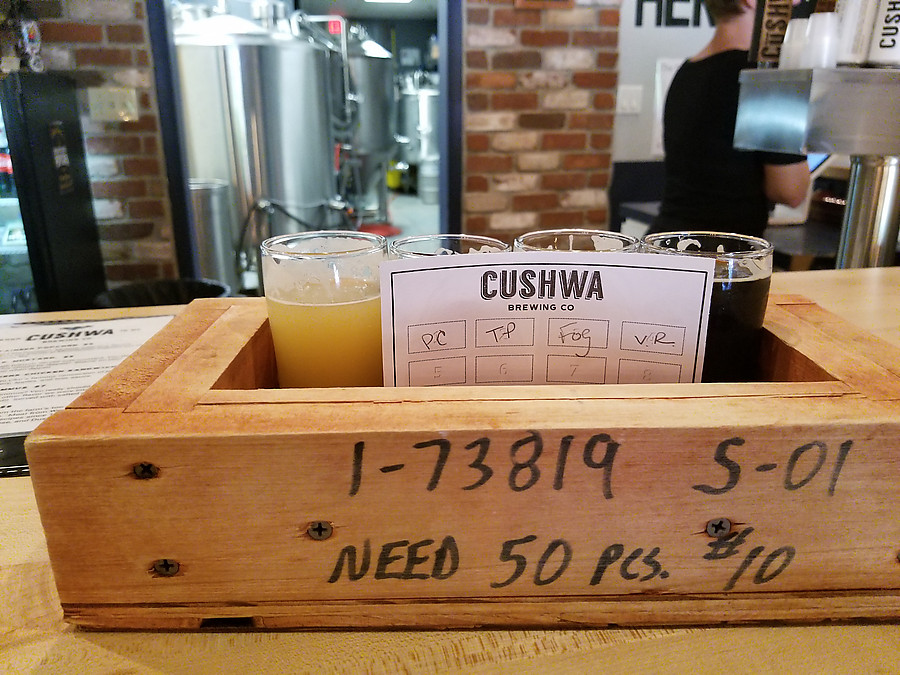 HEN
CUSH
CUSH
CUSHWA
BREWING CO
PC TP Fog V.R.
5 6 7 8
CUSHWA
1-73819 S-01
NEED 50 PCS. #10